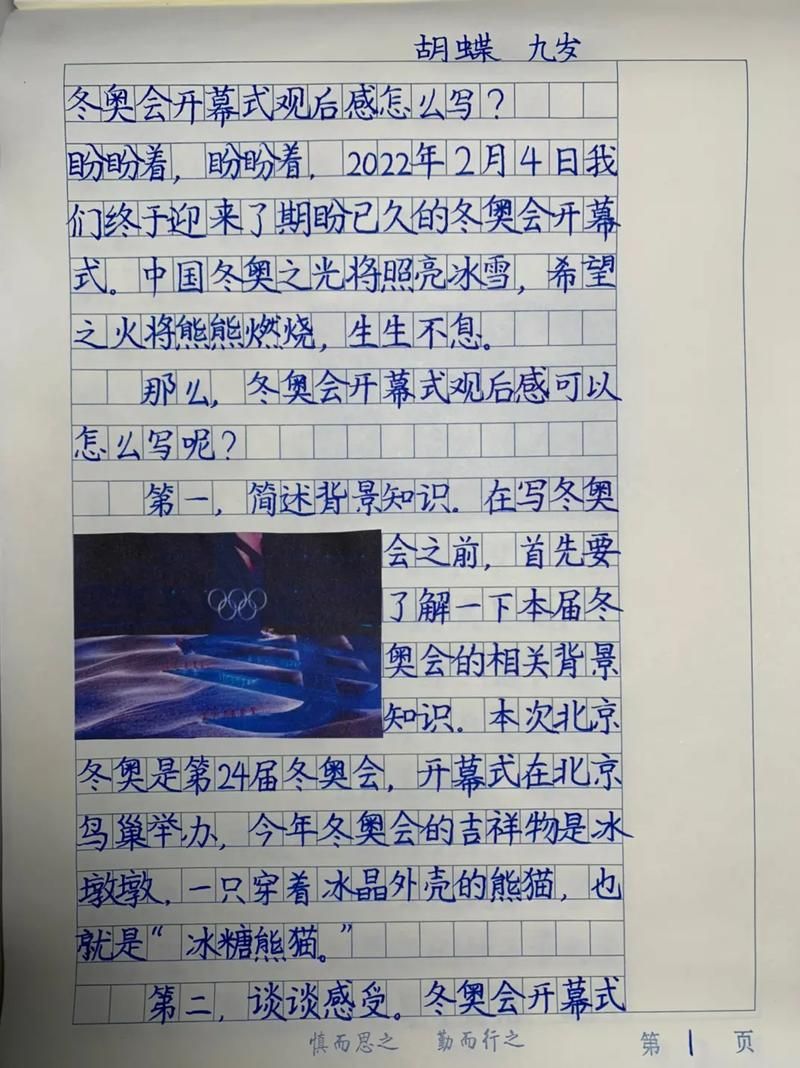 胡蝶 九岁
冬奥会开幕式观后感怎么写？
盼盼着，盼盼着，2022年2月4日我
们终于迎来了期盼已久的冬奥会开幕
式。中国冬奥之光将照亮冰雪，希望
之火将熊熊燃烧，生生不息。
那么，冬奥会开幕式观后感可以
怎么写呢？
第一，简述背景知识．在写冬奥
会之前，首先要
了解一下本届冬
奥会的相关背景
知识．本次北京
冬奥是第24届冬奥会，开幕式在北京
鸟巢举办，今年冬奥会的吉祥物是冰
墩墩，一只穿着冰晶外壳的熊猫，也
就是“冰糖熊猫。”
第二，谈谈感受。冬奥会开幕式
慎而思之 勤而行之 第 1 页